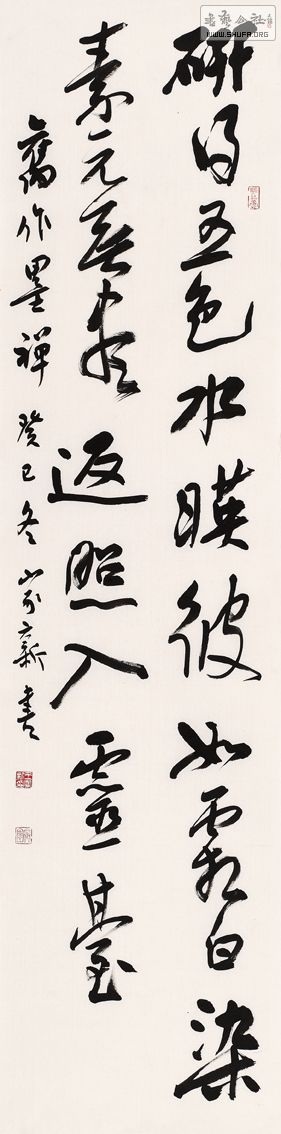 書藝公社
WWW.SHUFA.ORG
研得五色水暎彼如霜白染
素元無返照入靈臺
舊作墨禪 癸巳冬 家新書